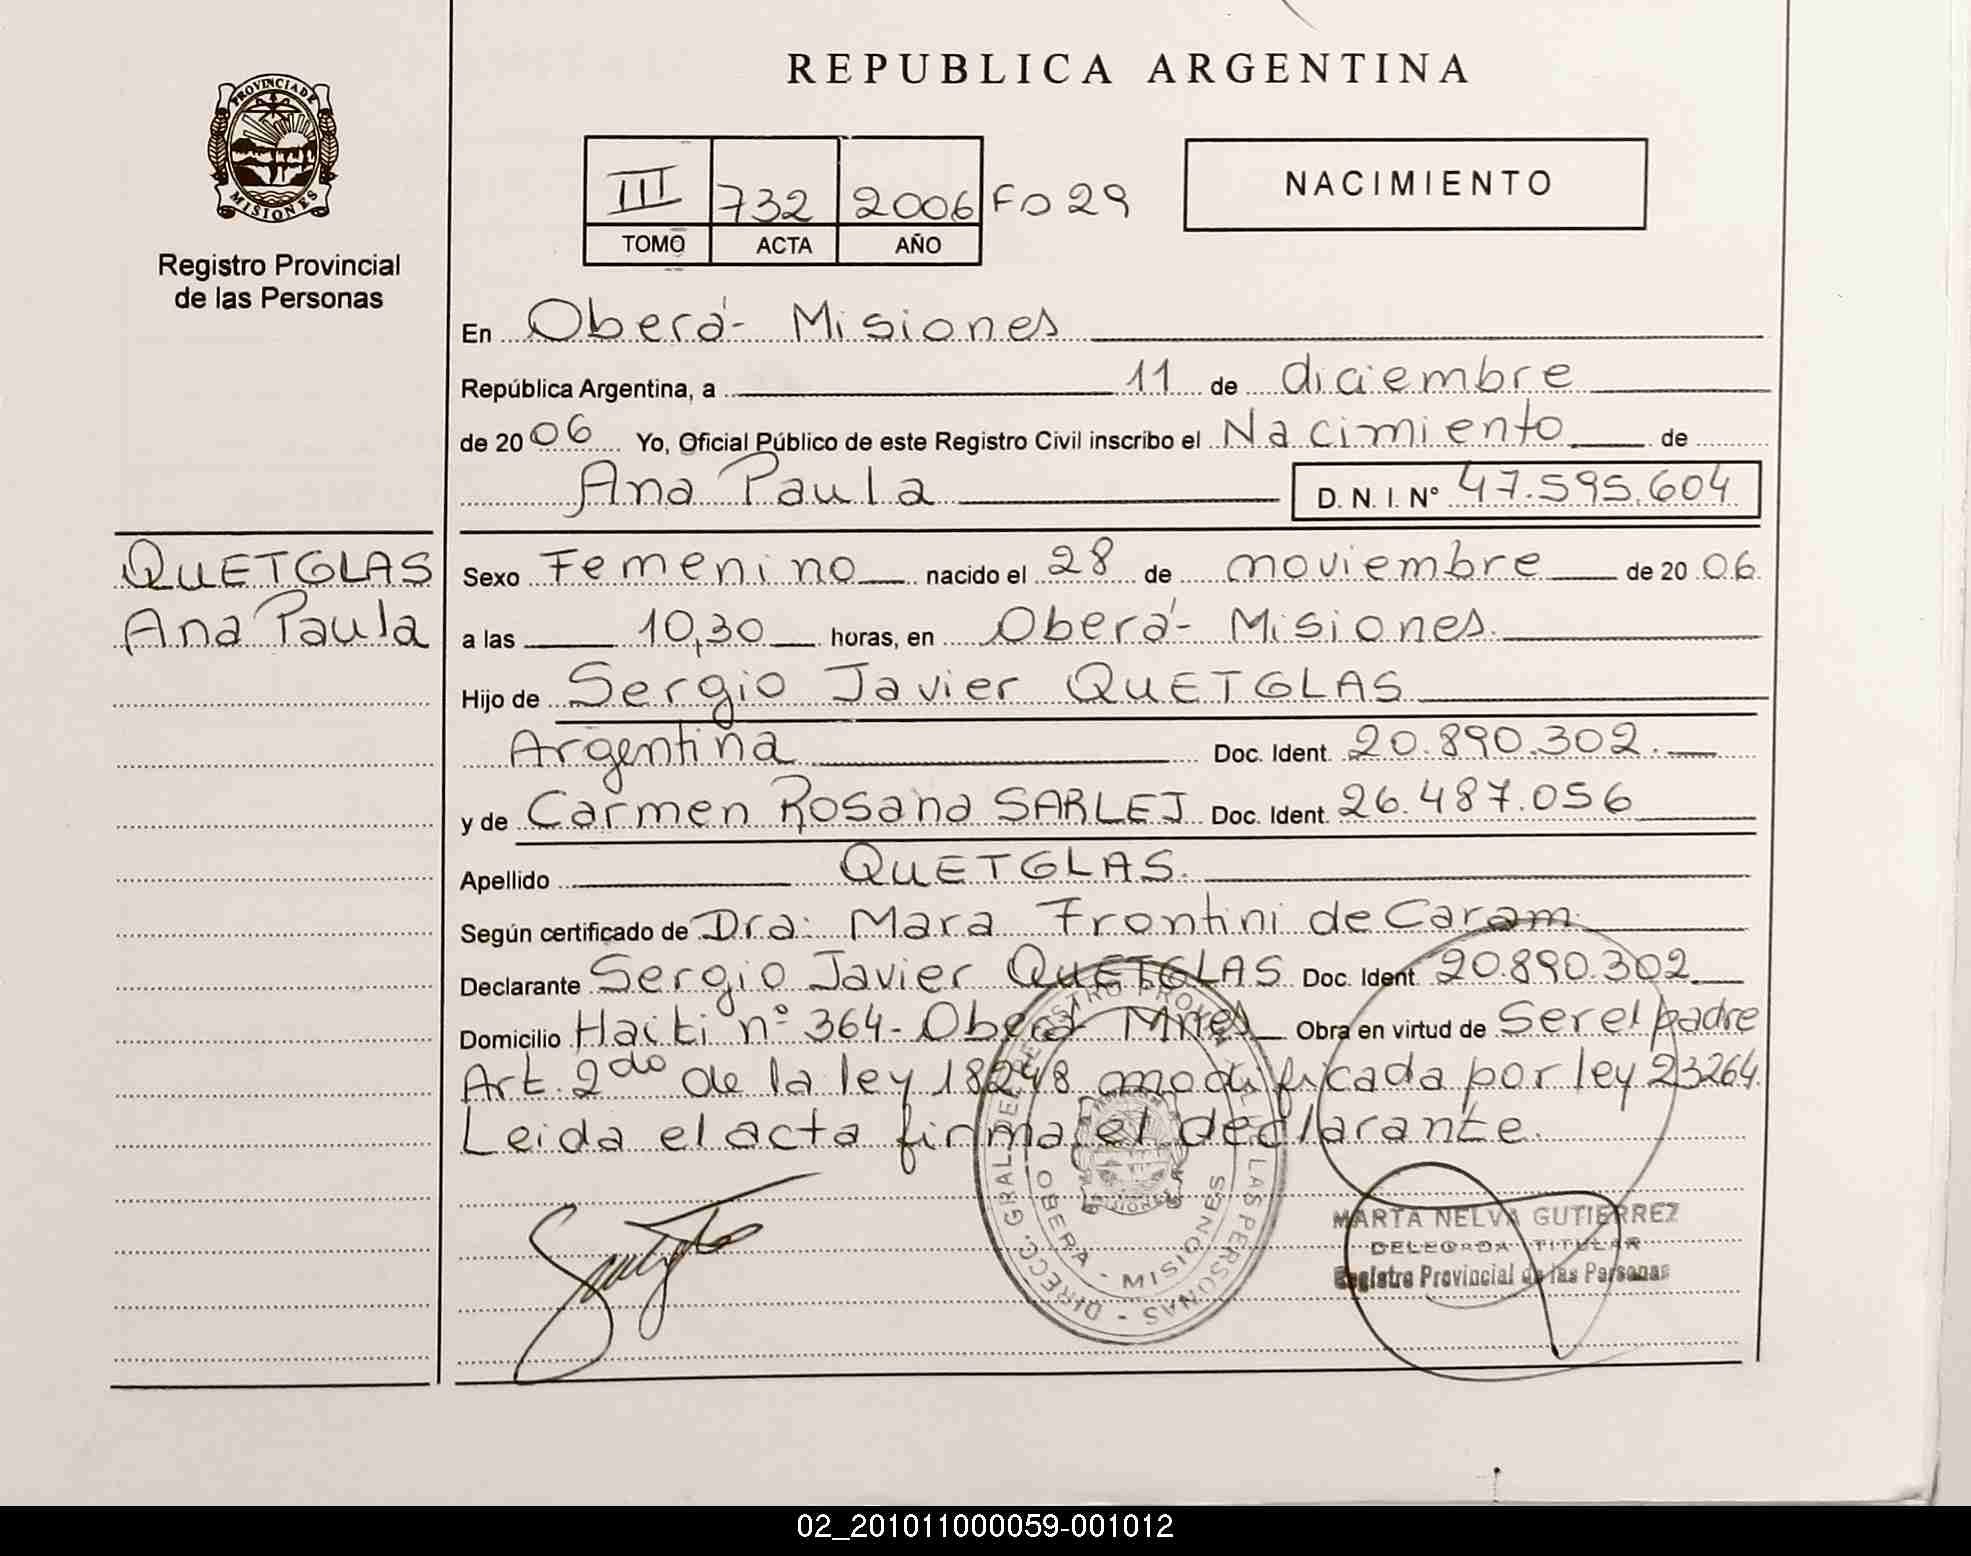 REPUBLICA ARGENTINA
PROVINCIA DE
MISIONES
Registro Provincial
de las Personas
III 732 2006 Fo 29
TOMO ACTA AÑO
NACIMIENTO
En Oberá - Misiones
República Argentina, a 11 de diciembre
de 2006 Yo, Oficial Público de este Registro Civil inscribo el Nacimiento de
Ana Paula D. N. I. N° 47.595.604
QUETGLAS
Ana Paula
Sexo Femenino nacido el 28 de noviembre de 2006
a las 10,30 horas, en Oberá - Misiones.
Hijo de Sergio Javier QUETGLAS
Argentina Doc. Ident. 20.890.302.
y de Carmen Rosana SARLEJ Doc. Ident. 26.487.056
Apellido QUETGLAS.
Según certificado de Dra: Mara Frontini de Caram
Declarante Sergio Javier QUETGLAS Doc. Ident. 20.890.302
Domicilio Haiti nº 364 - Oberá Mnes Obra en virtud de Ser el padre
Art. 2do de la ley 18248 modificada por ley 23264.
Leida el acta firma el declarante.
DIRECC. GRAL. DEL REGISTRO PROVINCIAL DE LAS PERSONAS
OBERA - MISIONES
MARTA NELVA GUTIERREZ
DELEGADA TITULAR
Registro Provincial de las Personas
02_201011000059-001012